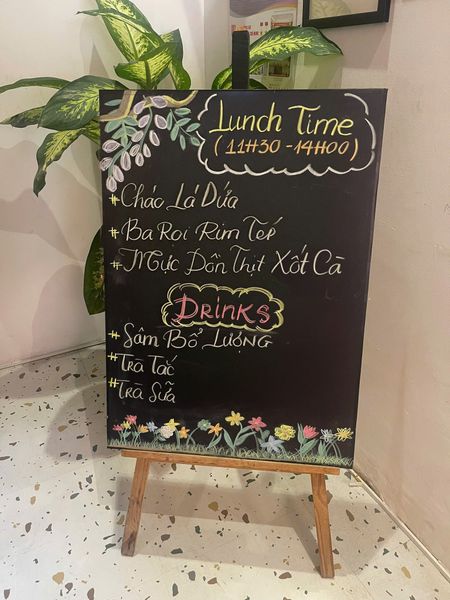 Lunch Time
(11H30 - 14H00)
# Cháo Lá Dứa
# Ba Rọi Rim Tép
# Mực Dồn Thịt Xốt Cà
DRINKS
# Sâm Bổ Lượng
# Trà Tắc
# Trà Sữa